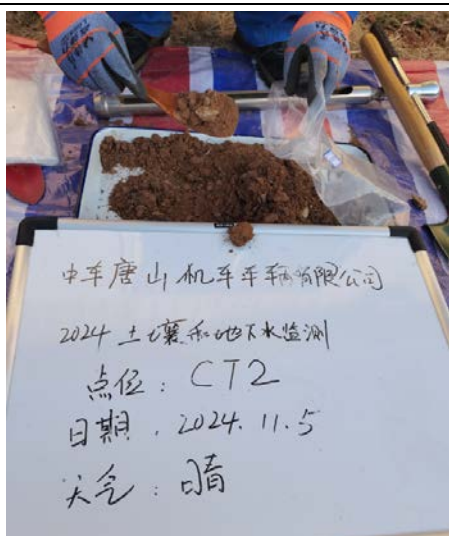 中车唐山机车车辆有限公司
2024 土壤和地下水监测
点位：CT2
日期：2024.11.5
天气：晴